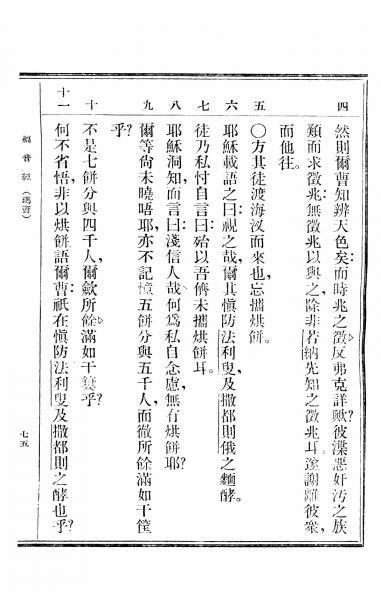 四 然則爾曹知辨天色矣：而時兆之徵，反弗克詳歟？彼渫惡奸汚之族
類而求徵兆：無徵兆以與之，除非若納先知之徵兆耳。遂謝離彼衆，
而他往。
五 〇方其徒渡海汊而來也，忘攜烘餅。
六 耶穌載語之曰：視之哉，爾其愼防法利叟，及撒都則俄之麵酵。
七 徒乃私忖自言曰：殆以吾儕未攜烘餅耳。
八 耶穌洞知，而言曰：淺信人哉，何爲私自念慮，無有烘餅耶？
九 爾等尙未曉唔耶，亦不記憶五餅分與五千人，而徹所餘滿如干筐
乎？
十 不是七餅分與四千人，爾斂所餘滿如干簍乎？
十一 何不省悟，非以烘餅語爾曹：祇在愼防法利叟及撒都則之酵也乎？
福音經（瑪竇）
七五